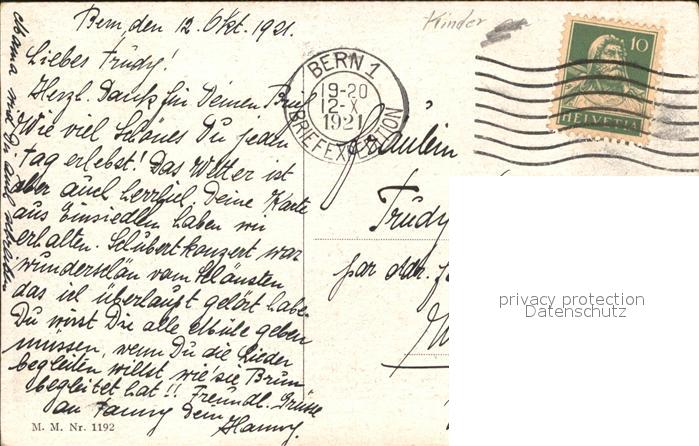 Bern, den 12. Okt. 1921.
Liebes Trudy!
Herzl. Dank für Deinen Brief
Wie viel schönes Du jeden
Tag erlebst! Das Wetter ist
aber auch herrlich. Deine Karte
aus Einsiedeln haben wir
erhalten. Schubertkonzert war
wunderschön vom Schönsten
das ich überhaupt gehört habe.
Du wirst Dir alle Mühe geben
müssen, wenn Du die Lieder
begleiten willst wie sie Brun
begleitet hat!! Freundl. Grüsse
an Fanny Dein
Hanny.
Mama
M. M. Nr. 1192
Kinder
BERN 1
19-20
12-X
1921
BRIEFEXPEDITION
10
HELVETIA
Fräulein
Trudy
par adr.
privacy protection
Datenschutz